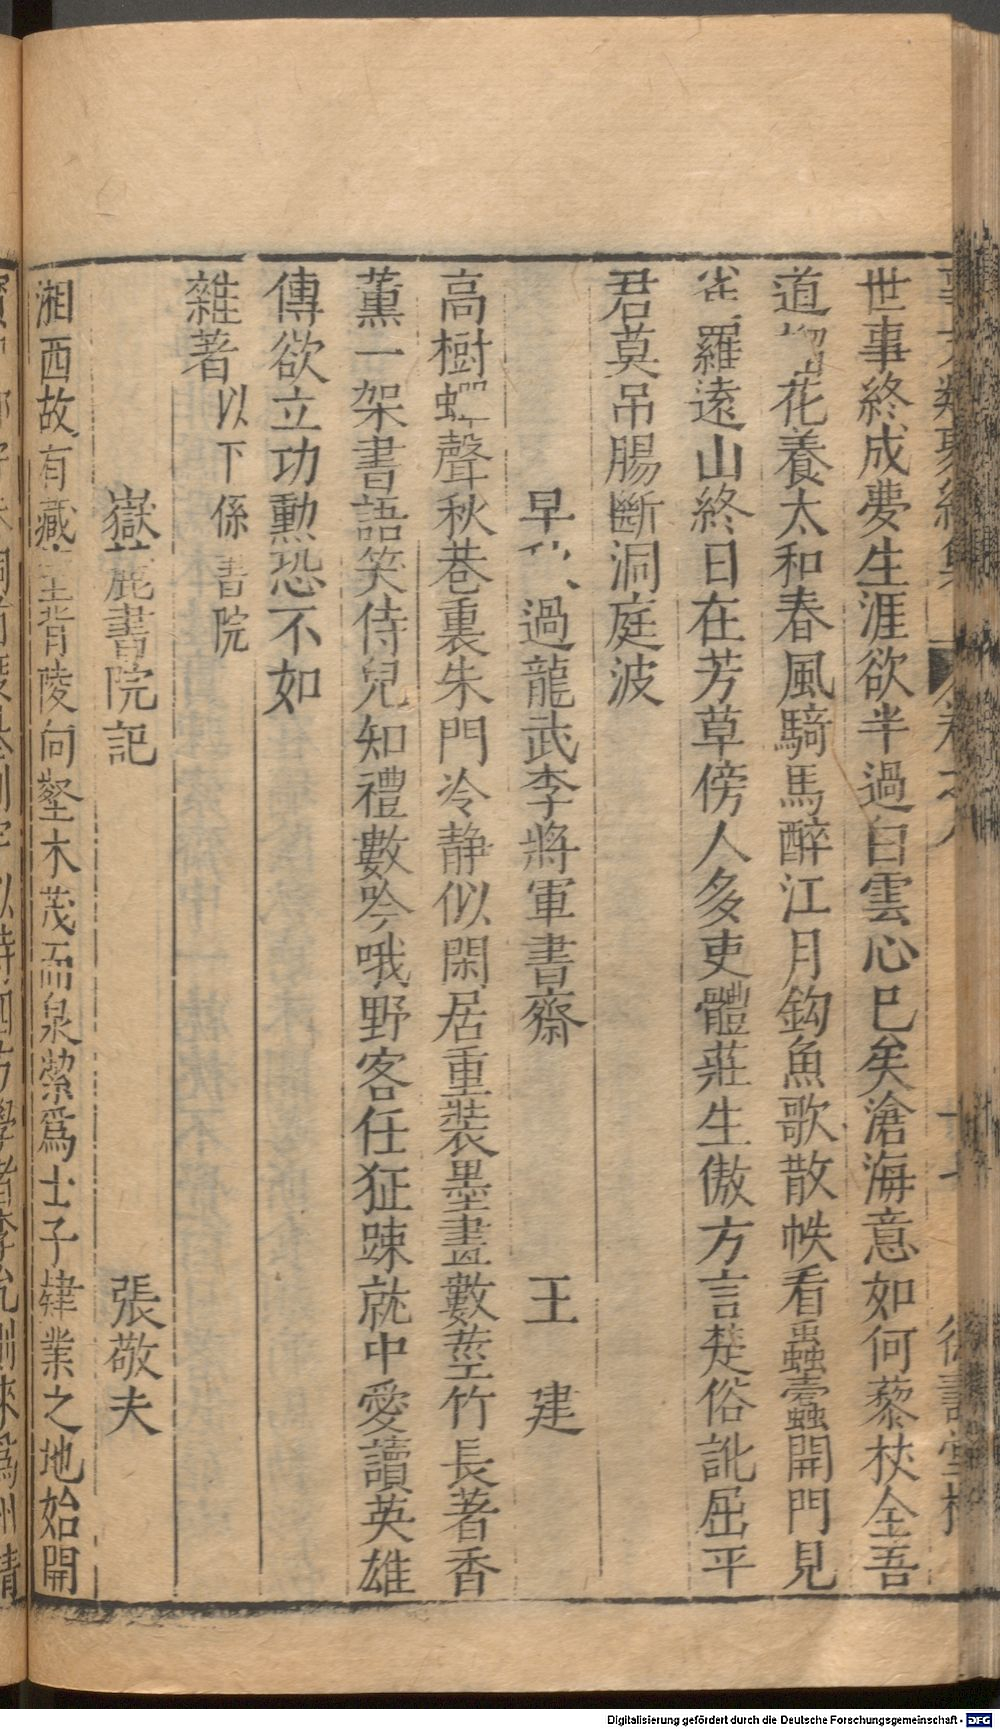 世事終成夢生涯欲半過白雲心已矣滄海意如何藜杖全吾
道 花養太和春風騎馬醉江月鈎魚歌散帙看蟲蠹開門見
雀羅遠山終日在芳草傍人多吏體莊生傲方言楚俗訛屈平
君莫吊腸斷洞庭波
早 過龍武李將軍書齋 王 建
高樹蟬聲秋巷裏朱門冷静似閑居重裝墨畫數莖竹長著香
薰一架書語笑侍兒知禮數吟哦野客任狂踈就中愛讀英雄
傳欲立功勳恐不如
雜著 以下係書院
嶽麓書院記 張敬夫
湘西故有藏室背陵向壑木茂而泉縈爲士子肄業之地始開
Digitalisierung gefördert durch die Deutsche Forschungsgemeinschaft - DFG